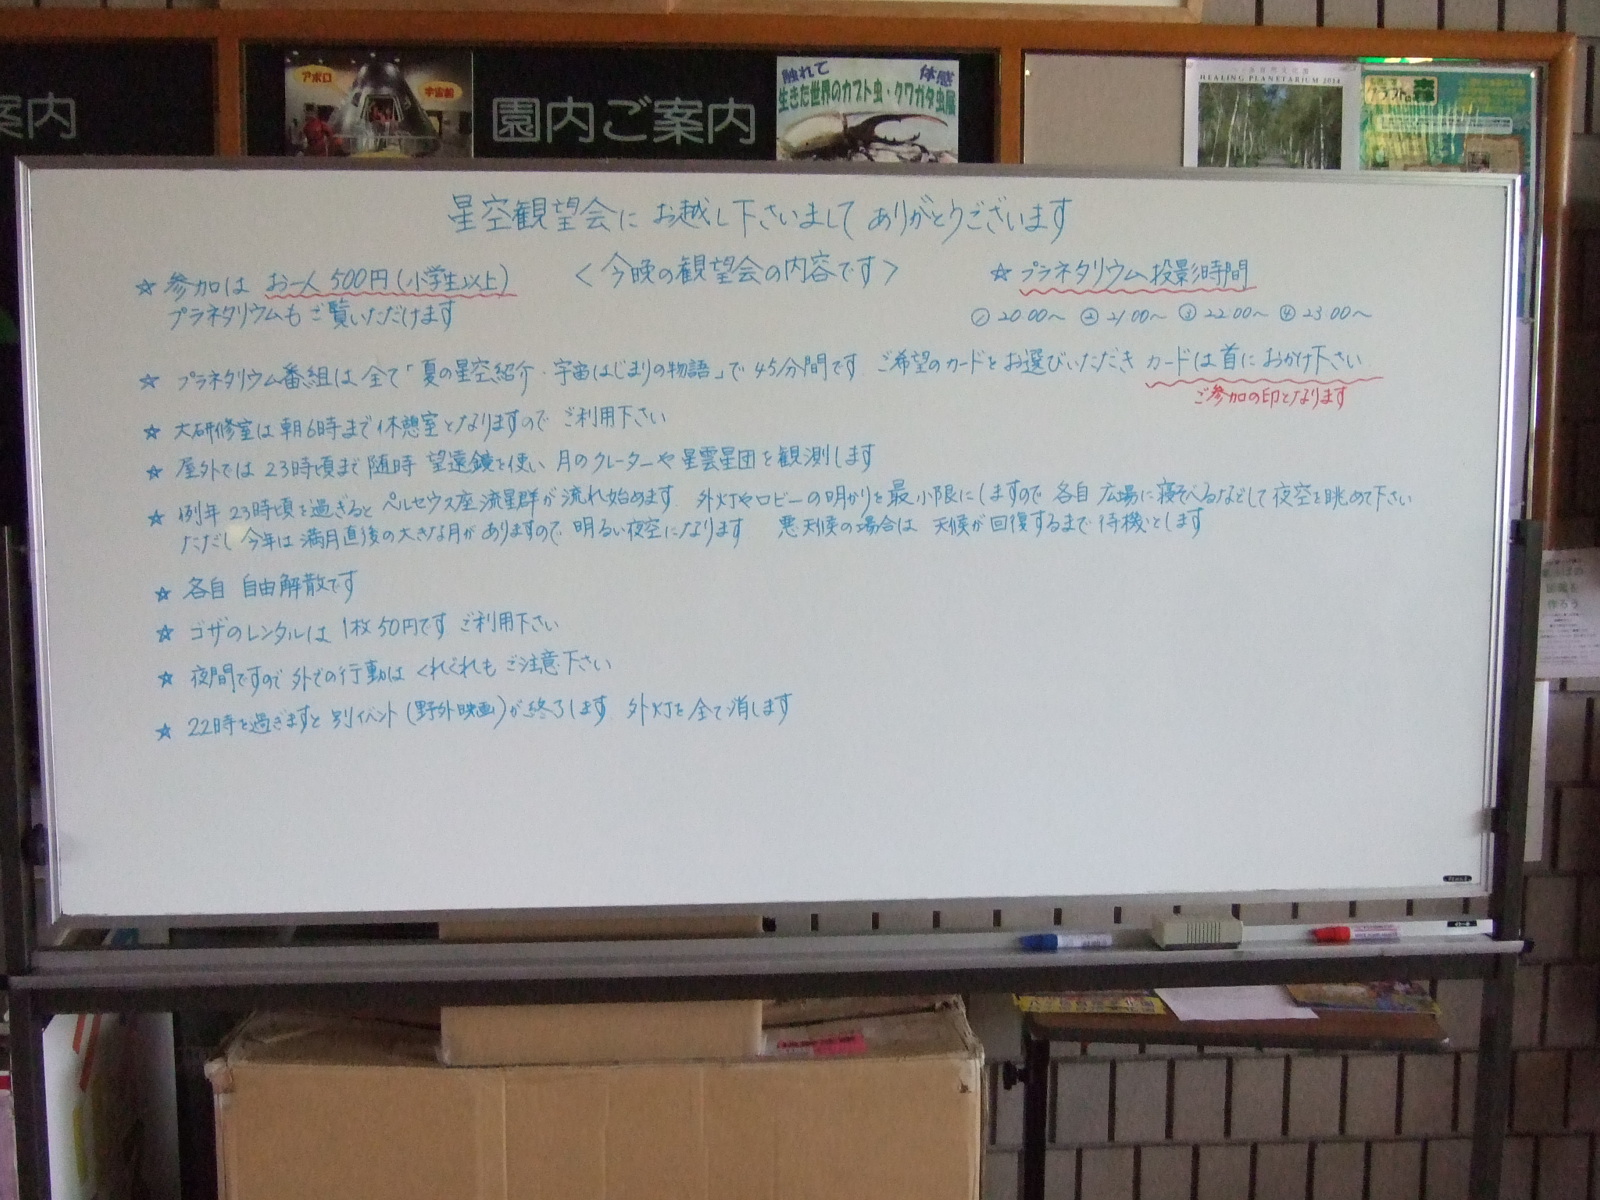 案内
アポロ
宇宙船
園内ご案内
触れて 体感
生きた世界のカブト虫・クワガタ虫展
HEALING PLANETARIUM 2014
森
星空観望会にお越し下さいまして ありがとうございます
<今晩の観望会の内容です>
☆ 参加は お一人 500円(小学生以上)
プラネタリウムも ご覧いただけます
☆ プラネタリウム投影時間
① 20:00~ ② 21:00~ ③ 22:00~ ④ 23:00~
☆ プラネタリウム番組は 全て「夏の星空紹介・宇宙はじまりの物語」で 45分間です ご希望のカードをお選びいただき カードは首に おかけ下さい
ご参加の印となります
☆ 大研修室は 朝6時まで休憩室となりますので ご利用下さい
☆ 屋外では 23時頃まで 随時 望遠鏡を使い 月のクレーターや 星雲星団を観測します
☆ 例年 23時頃を過ぎると ペルセウス座流星群が 流れ始めます 外灯やロビーの明かりを最小限にしますので 各自 広場に寝そべるなどして 夜空を眺めて下さい
ただし 今年は 満月直後の大きな月が ありますので 明るい夜空になります 悪天候の場合は 天候が回復するまで 待機とします
☆ 各自 自由解散です
☆ ゴザのレンタルは 1枚 50円です ご利用下さい
☆ 夜間ですので 外での行動は くれぐれも ご注意下さい
☆ 22時を過ぎますと 別イベント(野外映画)が終了します 外灯を 全て消します